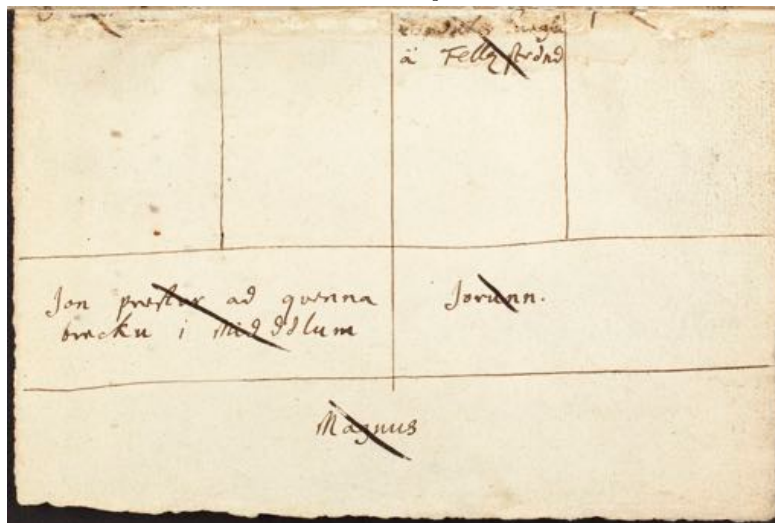 á Fellzströnd
Jon prestur ad qvenna
brecku i Middölum
Jorunn.
Magnus